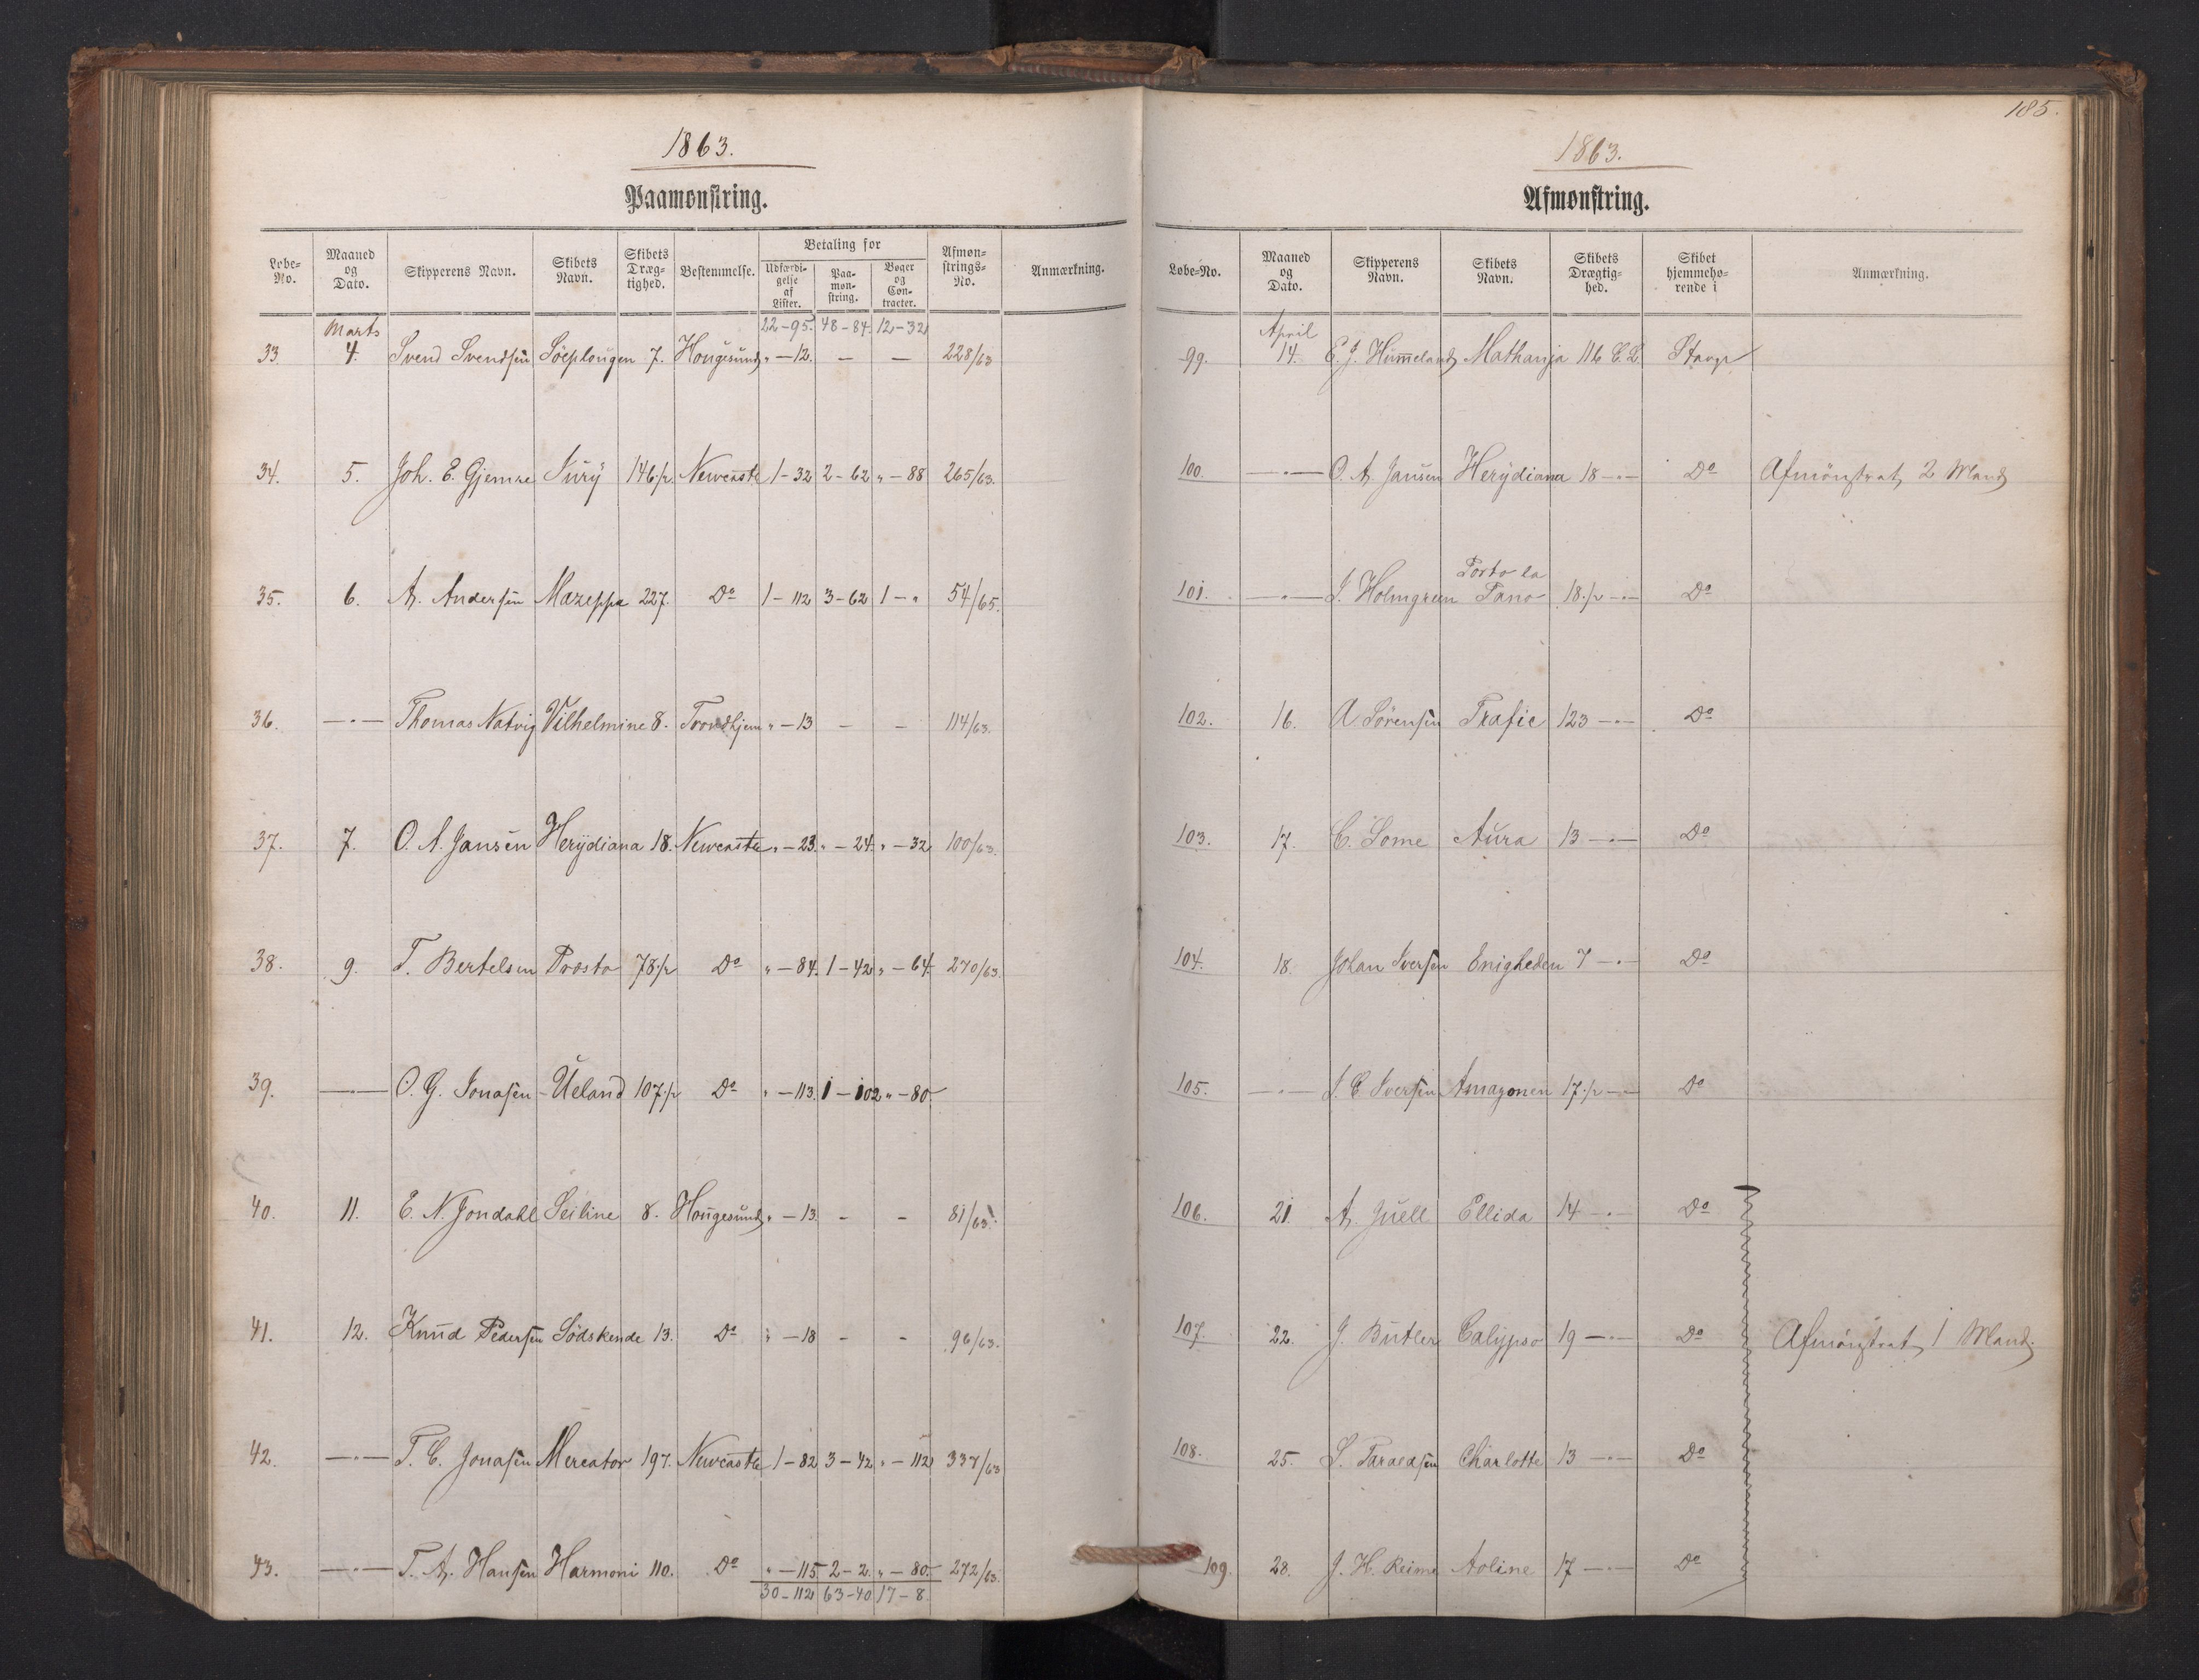 1863.
Paamønstring.
Løbe-No. | Maaned og Dato. | Skipperens Navn. | Skibets Navn. | Skibets Dræg-tighed. | Bestemmelse. | Betaling for | Udfærdi-gelse af Lister. | Paa-møn-string. | Bøger og Con-tracter. | Afmøn-strings-No. | Anmærkning.
22-95. 48-84. 12-32
Marts
33 4. Svend Svendsen Söeplougen 7. Hougesund " - 12. - - 228/63
34. 5. Joh. E. Gjemre Jury 146 1/2 Newcastle 1-32 2-62 " - 88 265/63.
35. 6. A. Andersen Mazeppa 227. Do 1-112 3-62 1 - " 54/65.
36. -"- Thomas Natvig Vilhelmine 8. Trondhjem " - 13 - - 114/63.
37. 7. O. A. Jansen Herÿdiana 18. Newcastle " - 23. " - 24. " - 32 100/63.
38. 9. T. Bertelsen Præsto 78 1/2 Do " - 84. 1-42 " - 64. 270/63.
39. -"- O. G. Jonasen Ueland 107 1/2 Do " - 113. 1-102 " - 80.
40. 11. E. N. Jondahl Seiline 8. Hougesund " - 13. - - 81/63.
41. 12. Knud Pedersen Södskende 13. Do " - 18 - - 96/63.
42. -"- T. C. Jonasen Mercator 197. Newcastle 1-82 3-42 " - 112 337/63
43. -"- T. A. Hansen Harmoni 110. Do " - 115 2-2. " - 80. 272/63.
30-112 63-40 17-8.
185.
1863.
Afmønstring.
Løbe-No. | Maaned og Dato. | Skipperens Navn. | Skibets Navn. | Skibets Drægtig-hed. | Skibet hjemmehø-rende i | Anmærkning.
April
99. 14. E. J. Hummeland Mathanja 116 C. L. Stavgr
100. -"- O. A. Jansen Herÿdiana 18 -"- Do Afmönstret 2 Mand
101. -"- J. Holmgreen Porto la Pano 18 1/2 -"- Do
102. 16. A Sörensen Trafic 123 -"- Do
103. 17. C. Some Aura 13 -"- Do
104. 18. Johan Iversen Enigheden 7 -"- Do
105. -"- J. C Iversen Amazonen 17 1/2 -"- Do
106. 21. A. Juell Ellida 14 -"- Do
107. 22. J. Butler Calypso 19 -"- Do Afmönstret 1 Mand.
108. 25. S. Taraldsen Charlotte 13 -"- Do
109. 28. J. H. Reime Aoline 17 -"- Do